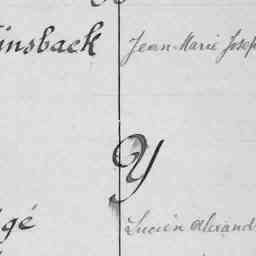 insback Jean-Marie Josep
Y
gé Lucien Alexand